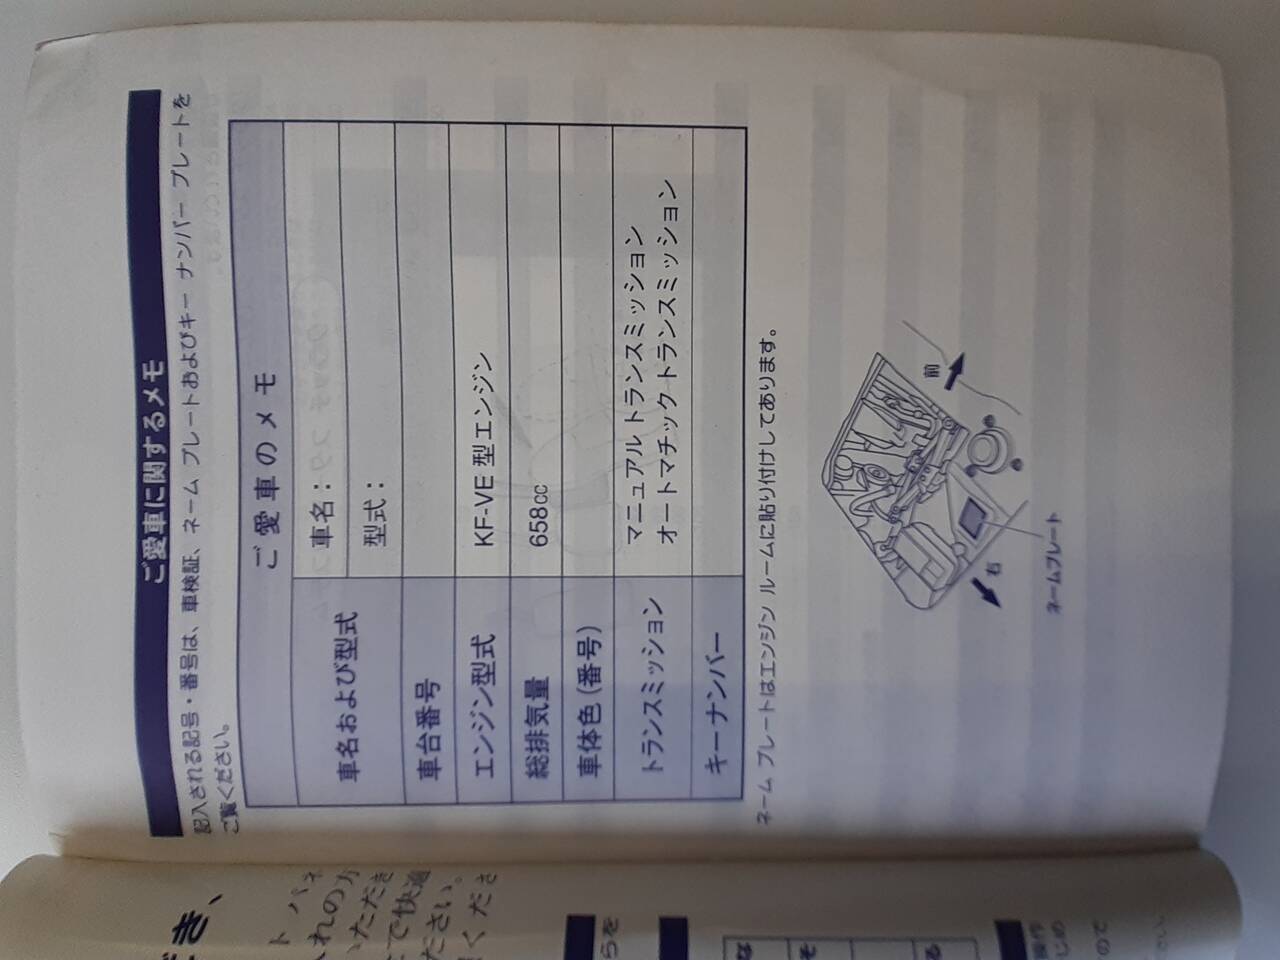 ご愛車に関するメモ
記入される記号・番号は、車検証、ネーム プレートおよびキー ナンバー プレートを
ご覧ください。
ご愛車のメモ
車名および型式
車名：
型式：
車台番号
エンジン型式
KF-VE 型エンジン
総排気量
658cc
車体色（番号）
トランスミッション
マニュアル トランスミッション
オートマチック トランスミッション
キーナンバー
ネーム プレートはエンジン ルームに貼り付けしてあります。
前
右
ネームプレート
き、
いただき
で快適
ださい。
くださ
らを
な
そ
る
操作
じめ
ので
さい。